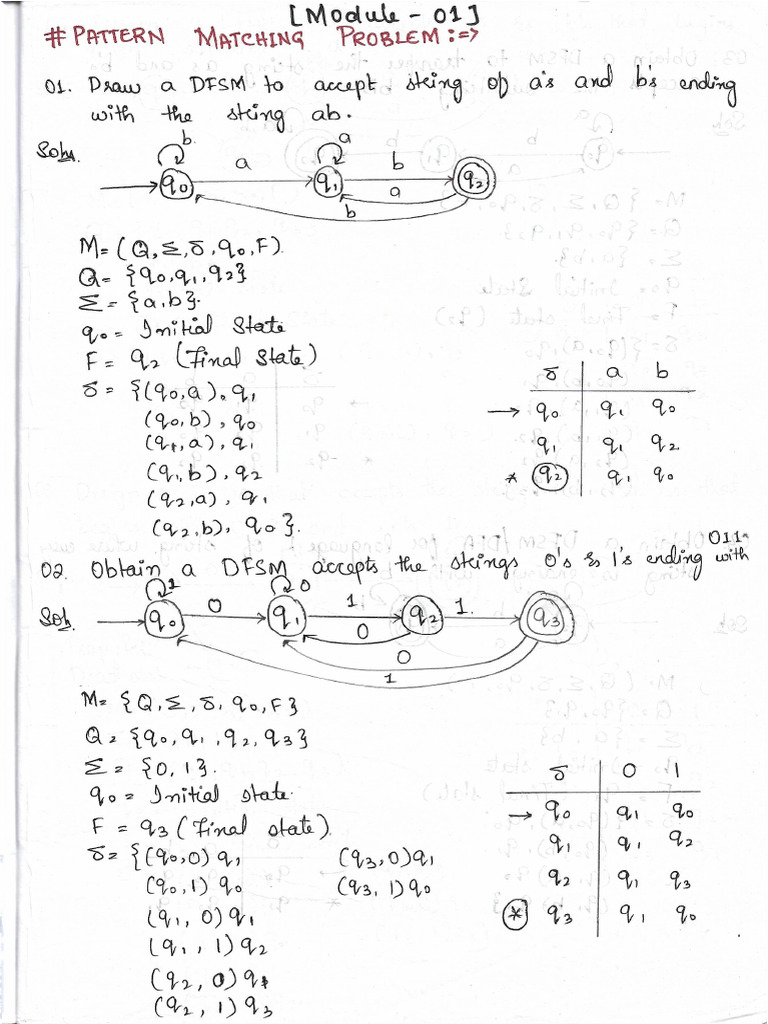 [Module - 01]
# PATTERN MATCHING PROBLEM :=>
01. Draw a DFSM to accept string of a's and bs ending
with the string ab.
Soln.
b
a
a
b
q0
q1
a
q2
b
M= (Q, Σ, δ, q0, F).
Q= {q0, q1, q2}
Σ = {a, b}.
q0 = Initial State
F = q2 (Final State)
δ = {(q0, a), q1
(q0, b), q0
(q1, a), q1
(q1, b), q2
(q2, a), q1
(q2, b), q0}.
δ a b
→ q0 q1 q0
q1 q1 q2
* q2 q1 q0
02. Obtain a DFSM accepts the strings 0's & 1's ending with 011.
Soln.
1
0
0
1
1.
q0
q1
q2
q3
0
0
1
M= {Q, Σ, δ, q0, F}
Q= {q0, q1, q2, q3}
Σ = {0, 1}.
q0 = Initial state.
F = q3 (Final state).
δ = {(q0, 0) q1 (q3, 0) q1
(q0, 1) q0 (q3, 1) q0
(q1, 0) q1
(q1, 1) q2
(q2, 0) q1
(q2, 1) q3
δ 0 1
→ q0 q1 q0
q1 q1 q2
q2 q1 q3
* q3 q1 q0